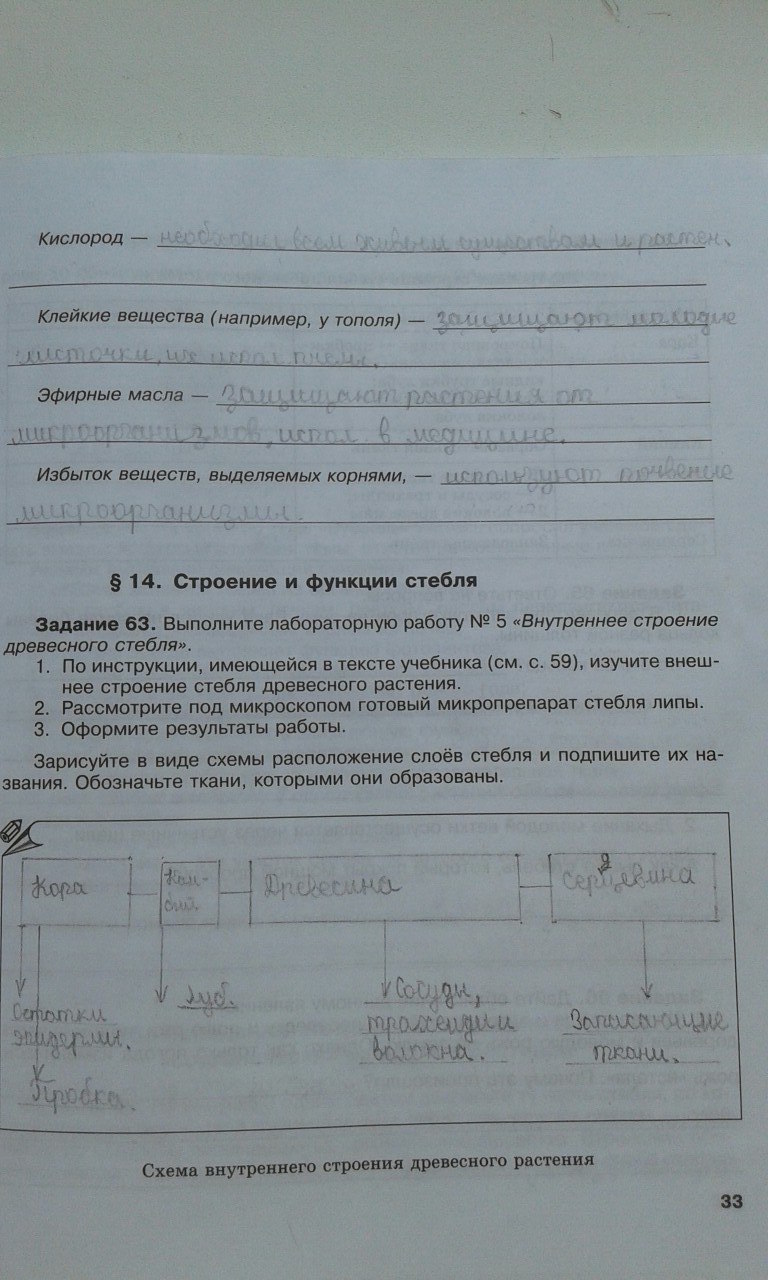 Кислород — необходим всем живым существам и растен.
Клейкие вещества (например, у тополя) — защищают молодые
листочки, их испол пчёлы.
Эфирные масла — защищают растения от
микроорганизмов, испол в медицине.
Избыток веществ, выделяемых корнями, — используют почвение
микроорганизмы.
§ 14. Строение и функции стебля
Задание 63. Выполните лабораторную работу № 5 «Внутреннее строение
древесного стебля».
1. По инструкции, имеющейся в тексте учебника (см. с. 59), изучите внеш-
нее строение стебля древесного растения.
2. Рассмотрите под микроскопом готовый микропрепарат стебля липы.
3. Оформите результаты работы.
Зарисуйте в виде схемы расположение слоёв стебля и подпишите их на-
звания. Обозначьте ткани, которыми они образованы.
Кора Кам- Древесина Серцевина
бий д
Остатки луб. Сосуды, Запасающие
эпидермы. трахеиды ткани.
Пробка. волокна.
Схема внутреннего строения древесного растения
33